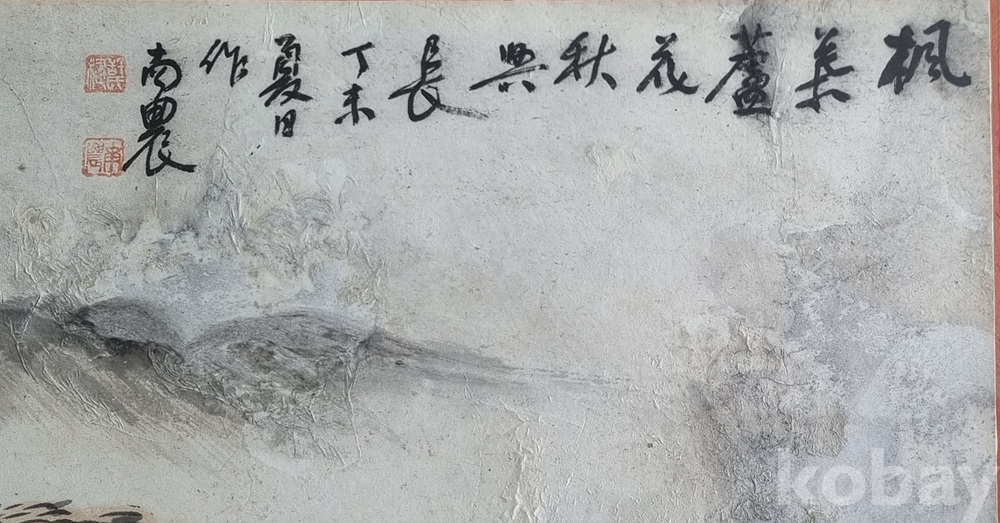 楓葉蘆花秋興長丁未夏日作南農
kobay